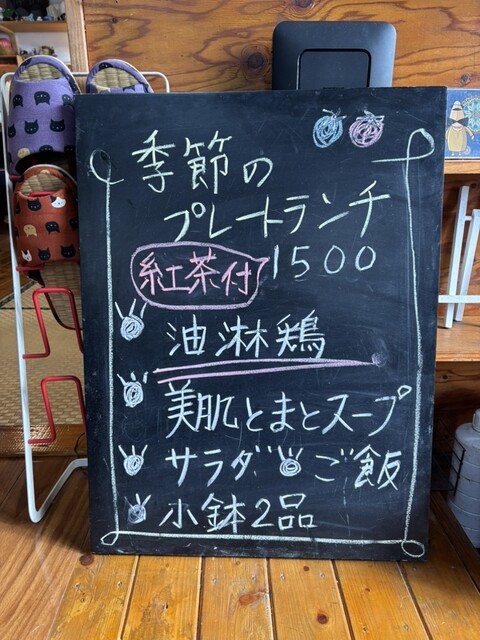 季節の
プレートランチ
紅茶付 1500
油淋鶏
美肌とまとスープ
サラダ ご飯
小鉢2品